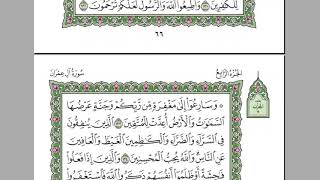 لِلْكَٰفِرِينَ ۝ وَأَطِيعُوا۟ ٱللَّهَ وَٱلرَّسُولَ لَعَلَّكُمْ تُرْحَمُونَ ۝
٦٦
سُورَةُ آلِ عِمْرَان
الجُزْءُ الرَّابِعُ
۞ وَسَارِعُوٓا۟ إِلَىٰ مَغْفِرَةٍ مِّن رَّبِّكُمْ وَجَنَّةٍ عَرْضُهَا
ٱلسَّمَٰوَٰتُ وَٱلْأَرْضُ أُعِدَّتْ لِلْمُتَّقِينَ ۝ ٱلَّذِينَ يُنفِقُونَ
فِى ٱلسَّرَّآءِ وَٱلضَّرَّآءِ وَٱلْكَٰظِمِينَ ٱلْغَيْظَ وَٱلْعَافِينَ
عَنِ ٱلنَّاسِ وَٱللَّهُ يُحِبُّ ٱلْمُحْسِنِينَ ۝ وَٱلَّذِينَ إِذَا فَعَلُوا۟
فَٰحِشَةً أَوْ ظَلَمُوٓا۟ أَنفُسَهُمْ ذَكَرُوا۟ ٱللَّهَ فَٱسْتَغْفَرُوا۟